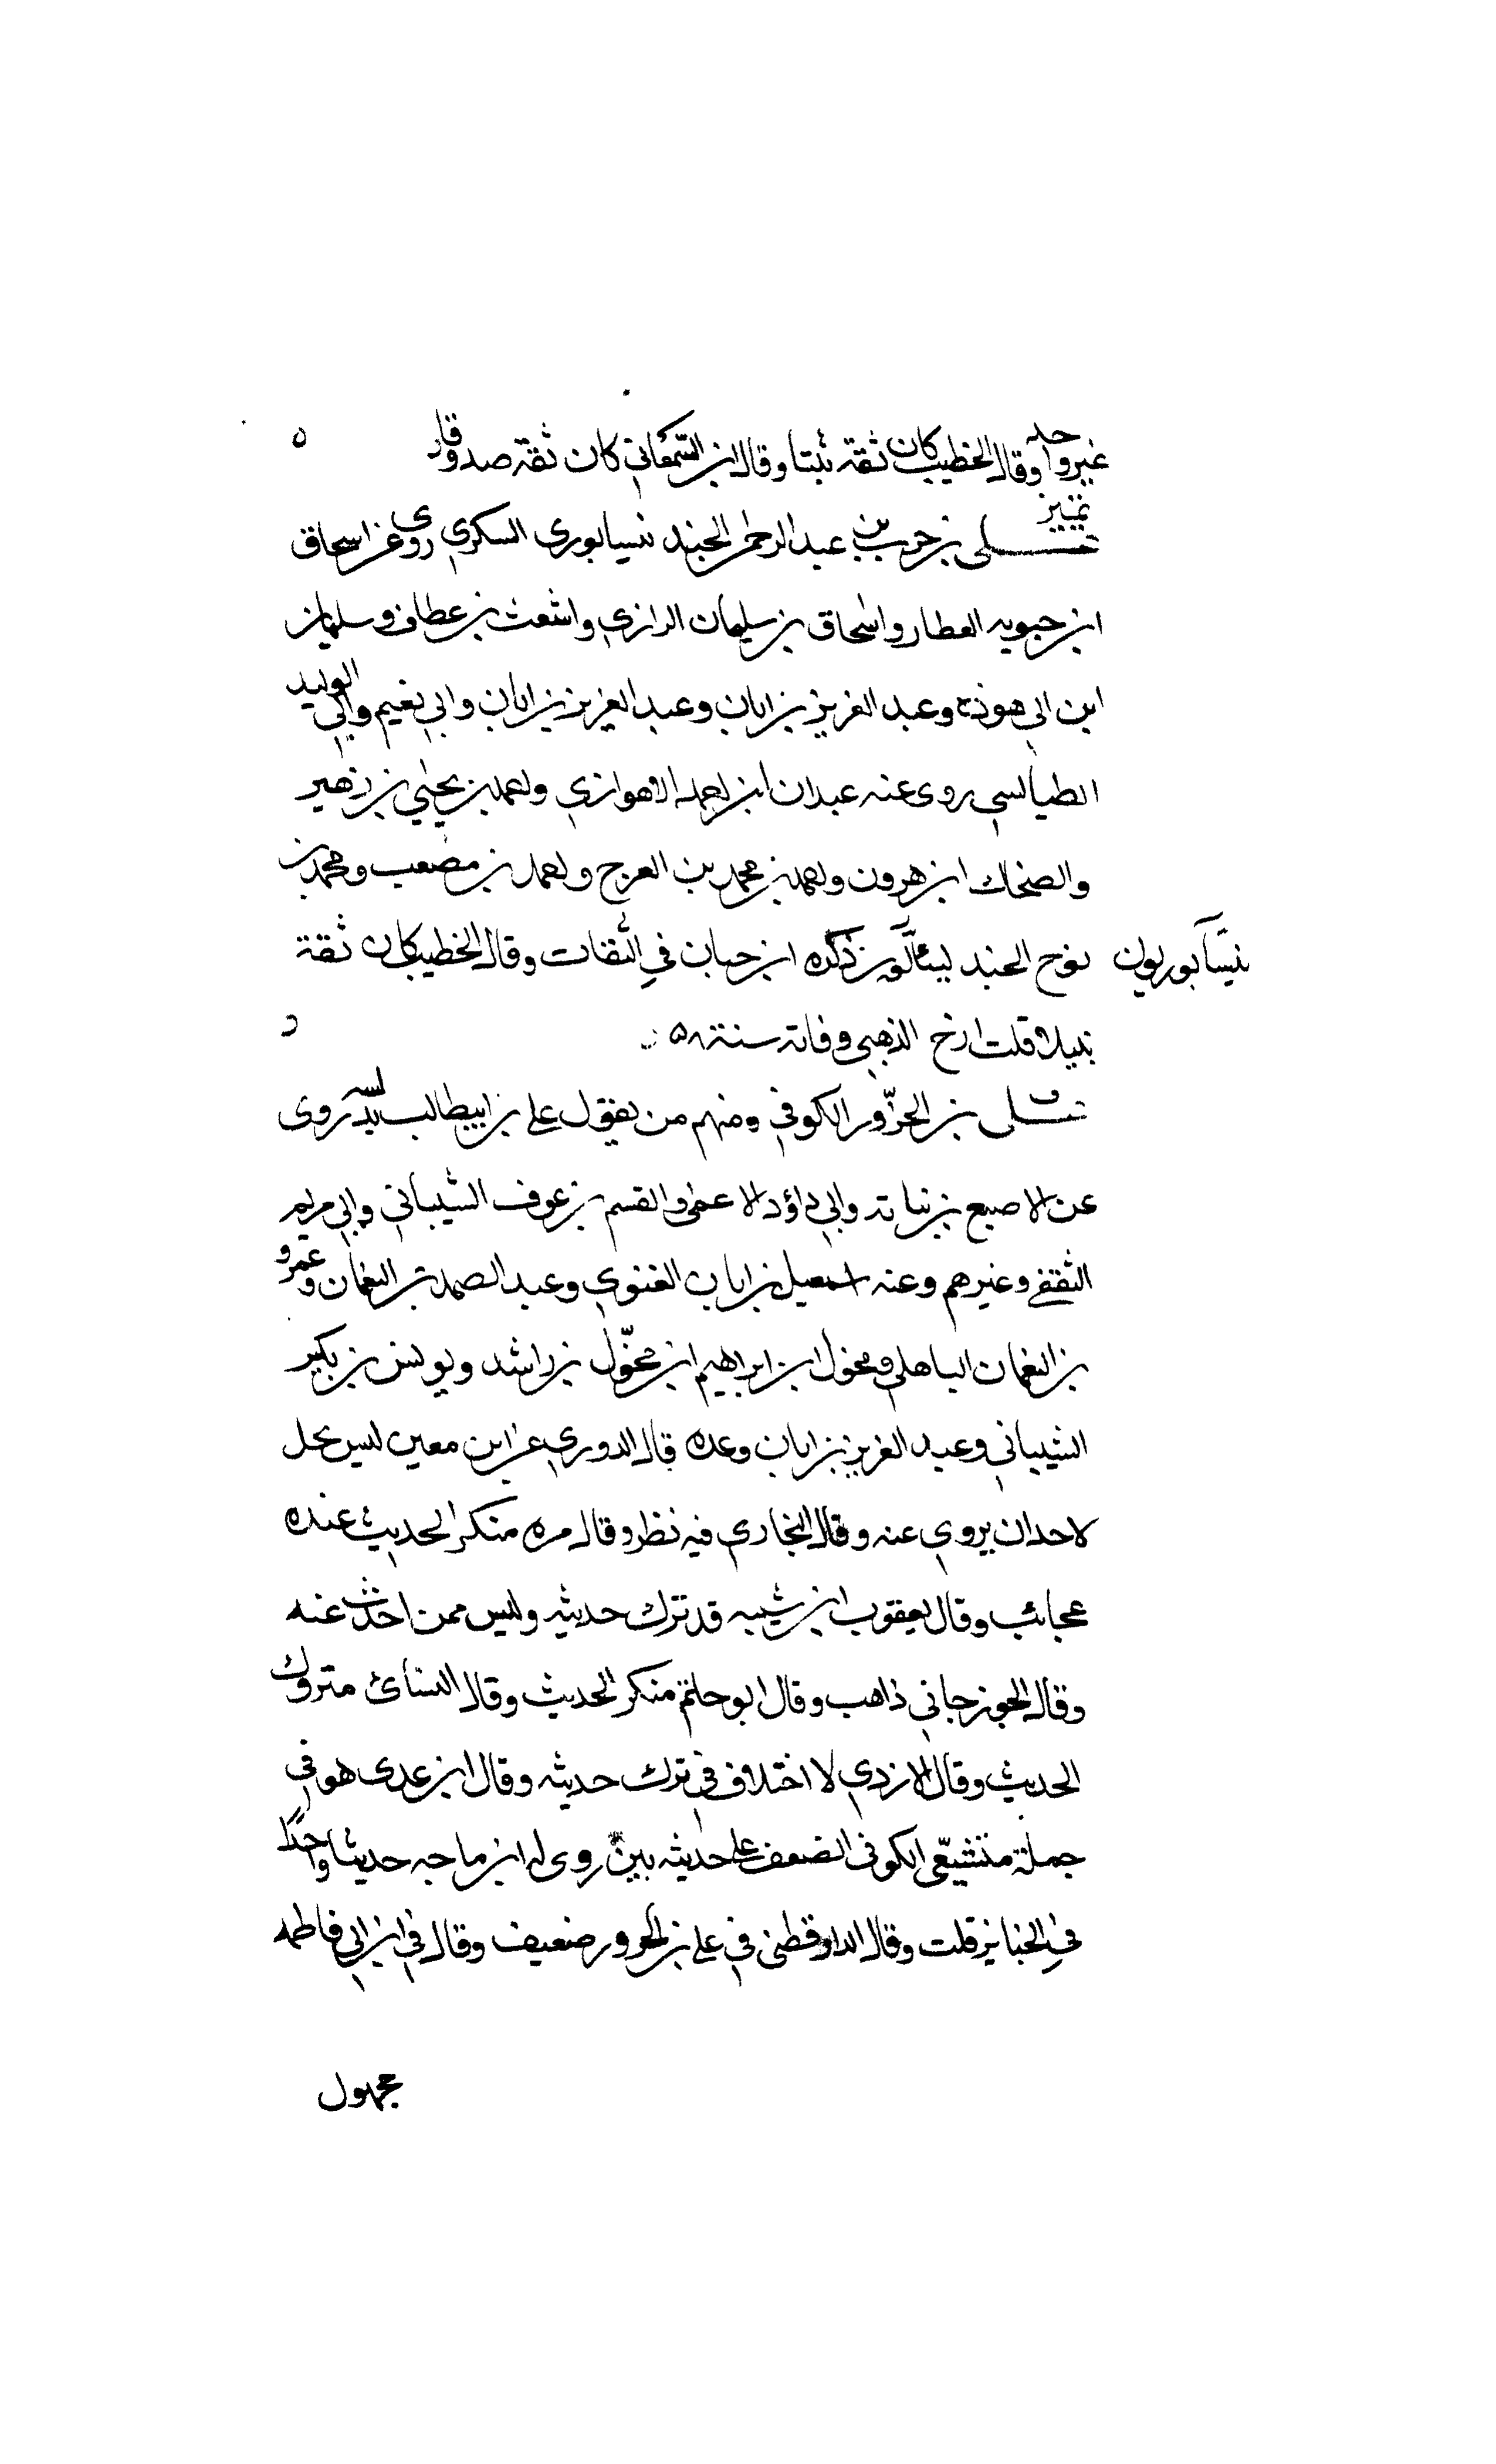 غير واحد وقال الخطيب كان ثقة ثبتا وقال ابن السمعاني كان ثقة صدوقا ه
تمييز
علي بن حرب بن عبد الرحمن الجند نيسابوري السكري روى عن اسحاق
ابن حبويه العطار واسحاق بن سليمان الرازي واشعث بن عطاف وسليمان
ابن ابي هوذه وعبد العزيز بن ابان وعبد العزيز بن ابان وابي نعيم وابي الوليد
الطيالسي روى عنه عبدان ابن احمد الاهوازي واحمد بن يحيي بن زهير
والضحاك ابن هرون واحمد بن محمد بن الفرج واحمد بن مصعب ومحمد بن
نوح الجند ذكره ابن حبان في الثقات وقال الخطيب كان ثقة
نيسابوريون
نبيلا قلت ارخ الذهبي وفاته سنة ٥٨
ق
علي بن الحزور الكوفي ومنهم من يقول علي بن ابيطالب روى
عن الاصبع بن نباته وابي داؤد الاعمى والقسم بن عوف الشيباني وابي مريم
الثقفي وغيرهم وعنه اسمعيل بن ابان الغنوي وعبد الصمد بن النعمان وعمرو
بن النعمان الباهلي ومخول ابن ابراهيم ابن مخوّل بن راشد ويونس بن بكير
الشيباني وعبد العزيز بن ابان وعده قال الدوري عن ابن معين ليس يحل
لاحد ان يروي عنه وقال البخاري فيه نظر وقال مره منكر الحديث عنده
عجائب وقال يعقوب ابن شيبه قد ترك حديثه وليس ممن احدث عنه
وقال الجوزجاني ذاهب وقال ابو حاتم منكر الحديث وقال النسأئ متروك
الحديث وقال الازدي لا اختلاف في ترك حديثه وقال ابن عدى هو في
جملة متشيعي الكوفه الضعف على حديثه بين روى له ابن ماجه حديثا واحدًا
في الجنايز قلت وقال الدارقطني في علي بن الحزور ضعيف وقال في ابن ابي فاطمه
مجهول